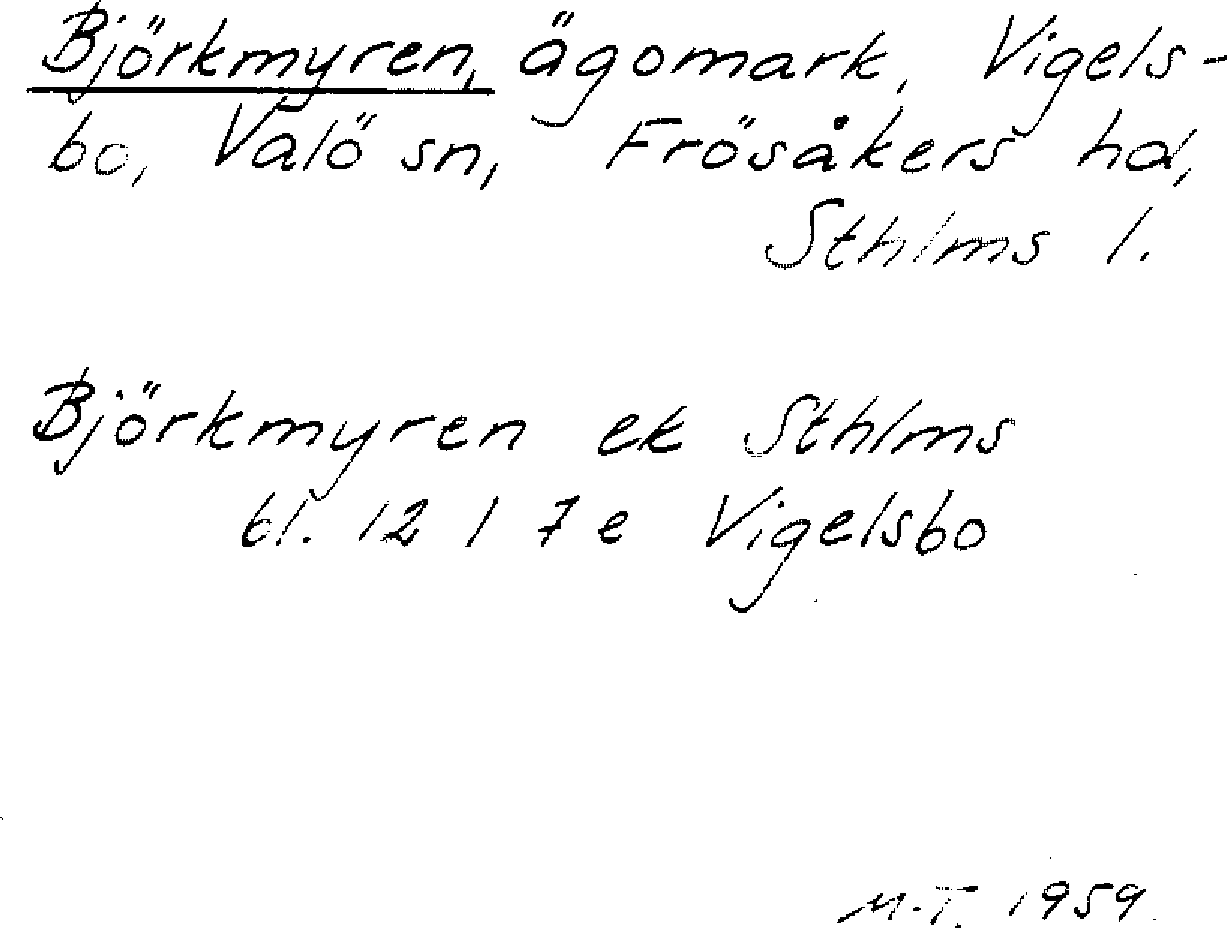 Björkmyren, ägomark, Vigels-
bo, Valö sn, Frösåkers hd,
Sthlms l.
Björkmyren ek Sthlms
bl. 12 I 7 e Vigelsbo
M.T. 1959.